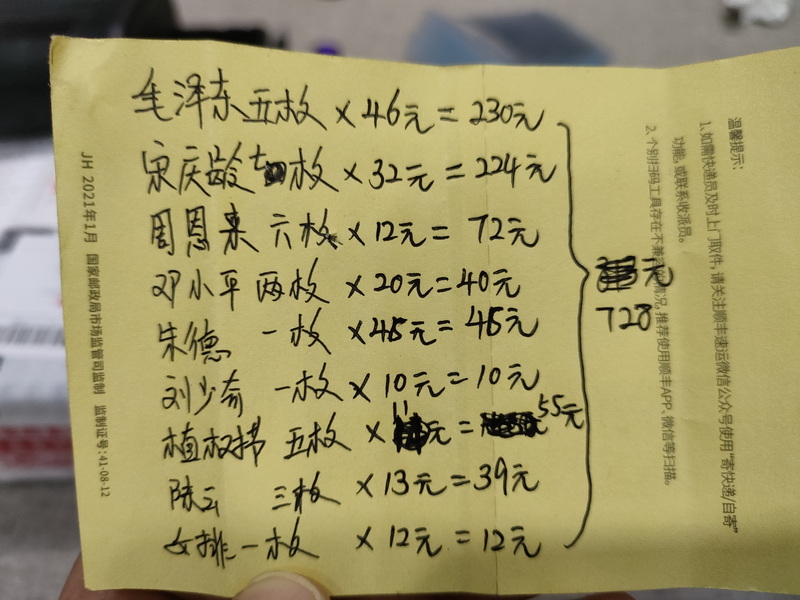 毛泽东五枚×46元=230元
宋庆龄七枚×32元=224元
周恩来 六枚×12元=72元
邓小平 两枚×20元=40元
朱德 一枚×45元=45元
刘少奇 一枚×10元=10元
植树节 五枚×11元=55元
陈云 三枚×13元=39元
女排一枚 ×12元=12元
元
728
温馨提示：
1、如需快递员及时上门取件，请关注顺丰速运微信公众号使用“寄快递/自寄”
功能，或联系收派员。
2、个别扫码工具存在不兼容的情况，推荐使用顺丰APP、微信等扫描。
JH 2021年1月 国家邮政局市场监管司监制 监制证号：41-08-12